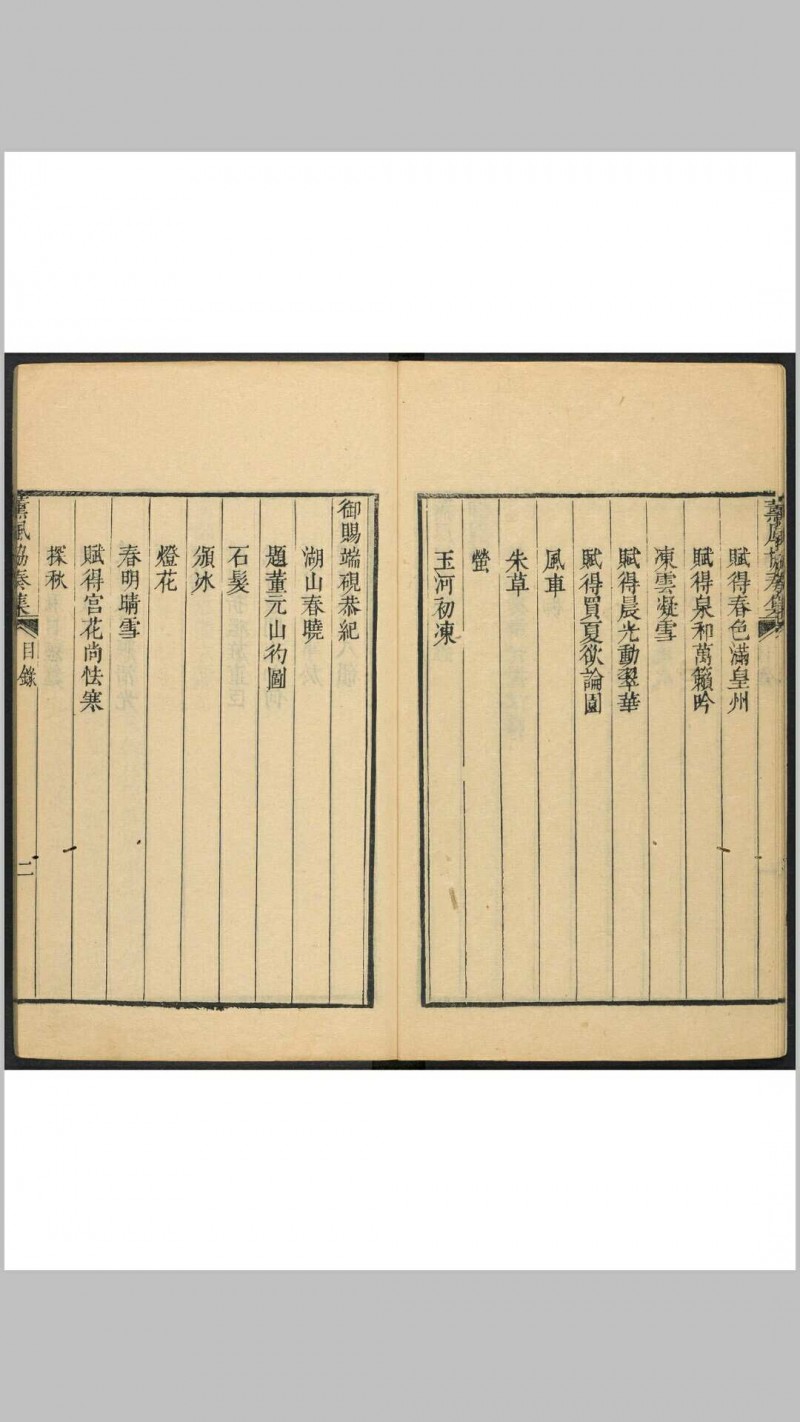 薰風協奏集
賦得春色滿皇州
賦得泉和萬籟吟
凍雲凝雪
賦得晨光動翠華
賦得買夏欲論園
風車
朱草
螢
玉河初凍
御賜端硯恭紀
湖山春曉
題董元山彴圖
石髮
頒冰
燈花
春明晴雪
賦得宮花尚怯寒
探秋
薰風協奏集
目錄
二